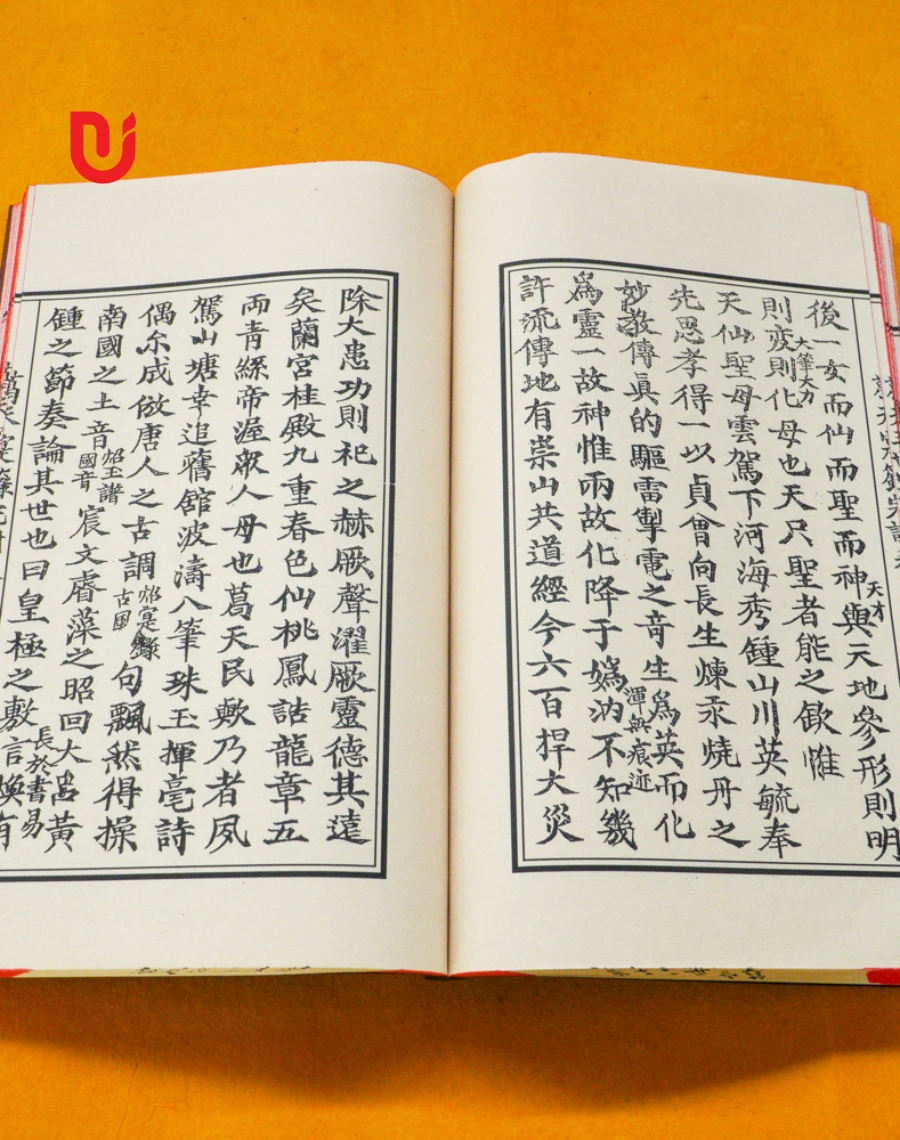 後一女而仙而聖而神與天地參形則明
天才
則変則化母也天只聖者能之歟惟
大筆大力
天仙聖母雲駕下河海秀鍾山川英毓奉
先思孝得一以貞會向長生煉汞燒丹之
妙教傳真的驅雷掣電之竒生為英而化
渾無痕迹
爲靈一故神惟兩故化降于嬀汭不知幾
許流傳地有崇山共道經今六百捍大災
除大患功則祀之赫厥聲濯厥靈德其遠
矣蘭宮桂殿九重春色仙桃鳳誥龍章五
両青絲帝渥衆人母也葛天民歟乃者夙
駕山塘幸追舊舘波濤八筆珠玉揮毫詩
偶尔成倣唐人之古調句飄然得操
古国
南國之土音宸文睿藻之昭回大呂黃
國音
鍾之節奏論其世也曰皇極之敷言煥有
長於書易